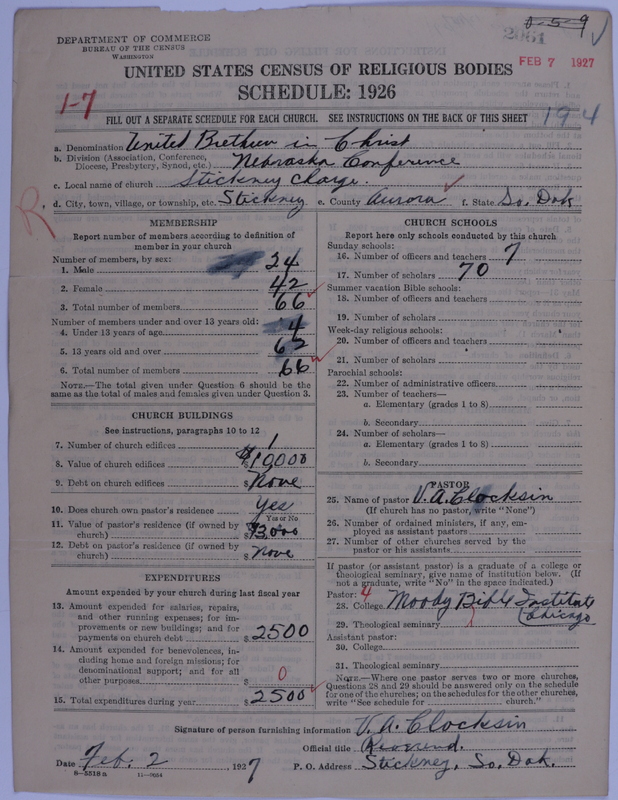 0-5-9
2061
DEPARTMENT OF COMMERCE
BUREAU OF THE CENSUS
WASHINGTON
FEB 7 1927
UNITED STATES CENSUS OF RELIGIOUS BODIES
SCHEDULE: 1926
1-7
FILL OUT A SEPARATE SCHEDULE FOR EACH CHURCH. SEE INSTRUCTIONS ON THE BACK OF THIS SHEET
194
a. Denomination United Brethren in Christ
b. Division (Association, Conference, Diocese, Presbytery, Synod, etc.) Nebraska Conference
c. Local name of church Stickney Charge.
d. City, town, village, or township, etc. Stickney e. County Aurora f. State So. Dak
R
MEMBERSHIP
Report number of members according to definition of
member in your church
Number of members, by sex:
1. Male 24
2. Female 42
3. Total number of members 66
Number of members under and over 13 years old:
4. Under 13 years of age 4
5. 13 years old and over 62
6. Total number of members 66
NOTE.—The total given under Question 6 should be the
same as the total of males and females given under Question 3.
CHURCH BUILDINGS
See instructions, paragraphs 10 to 12
7. Number of church edifices 1
8. Value of church edifices $10000
9. Debt on church edifices $ None
10. Does church own pastor's residence? Yes
Yes or No
11. Value of pastor's residence (if owned by
church) $3,000
12. Debt on pastor's residence (if owned by
church) $ None
EXPENDITURES
Amount expended by church during last fiscal year
13. Amount expended for salaries, repairs,
and other running expenses; for im-
provements or new buildings; and for
payments on church debt $ 2500
14. Amount expended for benevolences, in-
cluding home and foreign missions; for
denominational support; and for all
other purposes $ 0
15. Total expenditures during year $ 2500
CHURCH SCHOOLS
Report here only schools conducted by this church
Sunday schools:
16. Number of officers and teachers 7
17. Number of scholars 70
Summer vacation Bible schools:
18. Number of officers and teachers
19. Number of scholars
Week-day religious schools:
20. Number of officers and teachers
21. Number of scholars
Parochial schools:
22. Number of administrative officers
23. Number of teachers—
a. Elementary (grades 1 to 8)
b. Secondary
24. Number of scholars—
a. Elementary (grades 1 to 8)
b. Secondary
PASTOR
25. Name of pastor V. A. Clocksin
(If church has no pastor, write "None")
26. Number of ordained ministers, if any, em-
ployed as assistant pastors
27. Number of other churches served by the
pastor or his assistants
If pastor (or assistant pastor) is a graduate of a college or
theological seminary, give name of institution below. (If
not a graduate, write "No" in the space indicated.)
Pastor: 4
28. College Moody Bible Institute
Chicago
29. Theological seminary
Assistant pastor:
30. College
31. Theological seminary
NOTE.—Where one pastor serves two or more churches,
Questions 28 and 29 should be answered only on the schedule
for one of the churches; on the schedules for the other churches,
write "See schedule for church."
Signature of person furnishing information V. A. Clocksin
Official title Reverend.
Date Feb. 2 1927 P. O. Address Stickney, So. Dak.
8-5318 a 11-9054